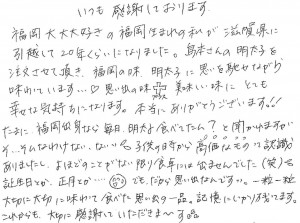 いつも 感謝しております
福岡大大大好きの福岡生まれの私が滋賀県に
引越して20年くらいになりました。島本さんの明太子を
注文させて頂き、福岡の味、明太子に思いを馳せながら
味わています…♡思い出の味 美味しい味に とても
幸せな気持ちになります。本当にありがとうございます!!
たまに、福岡出身なら毎日、明太子食べてたん？と聞かれますが
そ…そんなわけない、ない。子供の時から高価なものって認識が
ありましたし、よほどのことがない限り食卓には出ませんでした。(笑)
誕生日とか、正月とか… でも、だから思い出なんです…。一粒一粒
大切に大切に味わて食べた思い出の一品。記憶にしっかり残ってます。
これからも、大切に感謝していただきま～す。